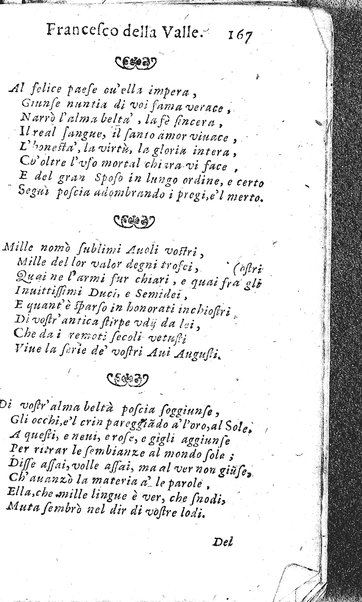 Francesco della Valle. 167
Al felice paese ou'ella impera,
Giunse nuntia di voi fama verace,
Narrò l'alma beltà, la fè sincera,
Il real sangue, il santo amor viuace,
L'honestà, la virtù, la gloria intera,
Ch'oltre l'vso mortal chiara vi face,
E del gran Sposo in lungo ordine, e certo
Seguì poscia adombrando i pregi, e'l merto.
Mille nomò sublimi Auoli vostri,
Mille del lor valor degni trofei, (ostri
Quai ne l'armi fur chiari, e quai fra gli
Inuittissimi Duci, e Semidei,
E quant'è sparso in honorati inchiostri
Di vostr'antica stirpe vdij da lei,
Che da i remoti secoli vetusti
Viue la serie de' vostri Aui Augusti.
Di vostr'alma beltà poscia soggiunse,
Gli occhi, e'l crin pareggiādo a l'oro, al Sole,
A questi, e neui, e rose, e gigli aggiunse
Per ritrar le sembianze al mondo sole;
Disse assai, volle assai, ma al ver non giūse,
Ch'auanzò la materia a le parole,
Ella, che mille lingue è ver, che snodi,
Muta sembrò nel dir di vostre lodi.
Del